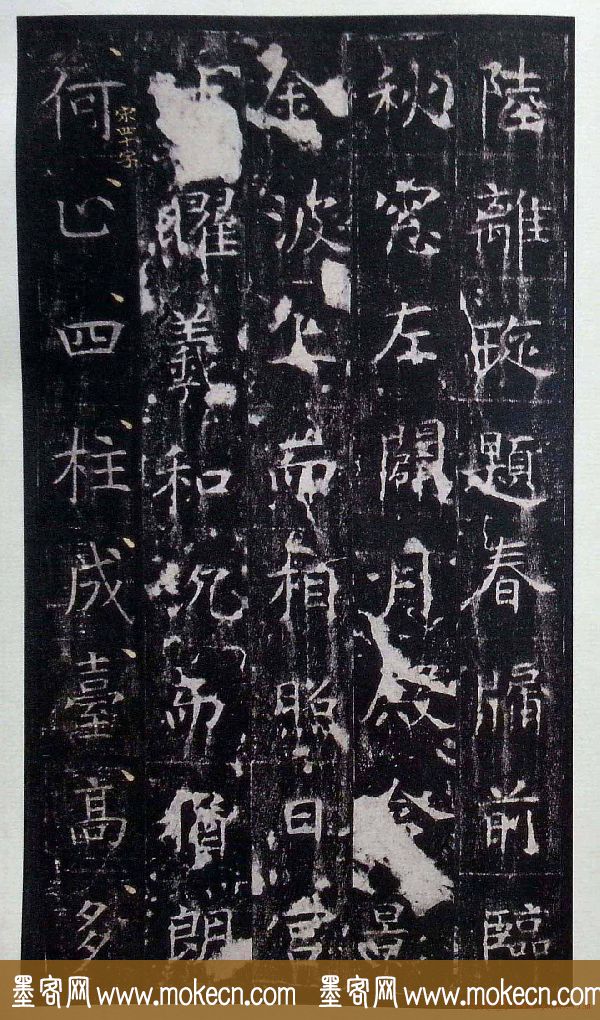 陸離題春牖前臨
秋窓左闢月殿含景
金波而相照日宮
曜羲和沉而猶朗
何止四柱成臺高多
墨客网 www.mokecn.com 墨客网 www.mokecn.com